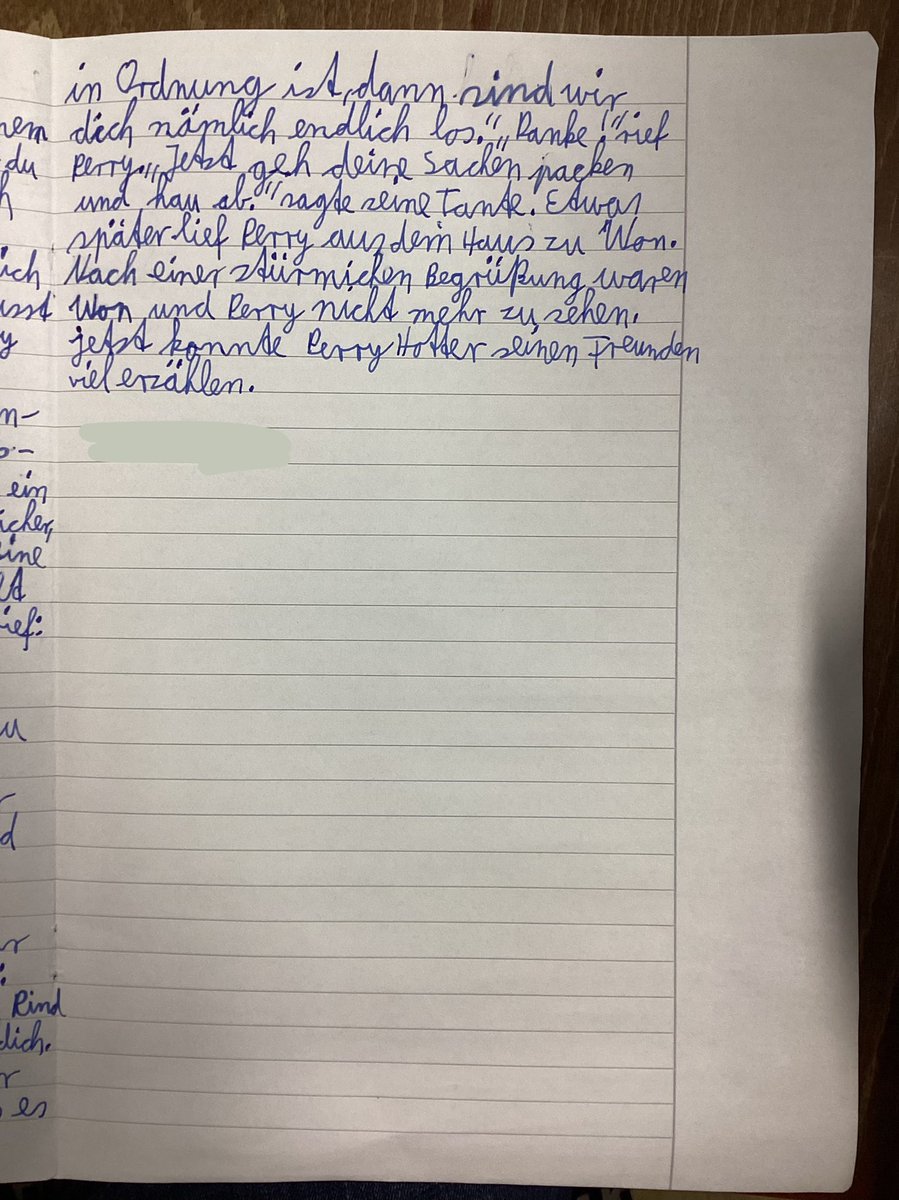 in Ordnung ist, dann sind wir
dich nämlich endlich los." „Danke!" rief
Perry. „Jetzt geh deine Sachen packen
und hau ab." sagte seine Tante. Etwas
später lief Perry aus dem Haus zu Won.
Nach einer stürmichen Begrüßung waren
Won und Perry nicht mehr zu sehen.
jetzt konnte Perry Hotter seinen Freunden
viel erzählen.
du
ein
es